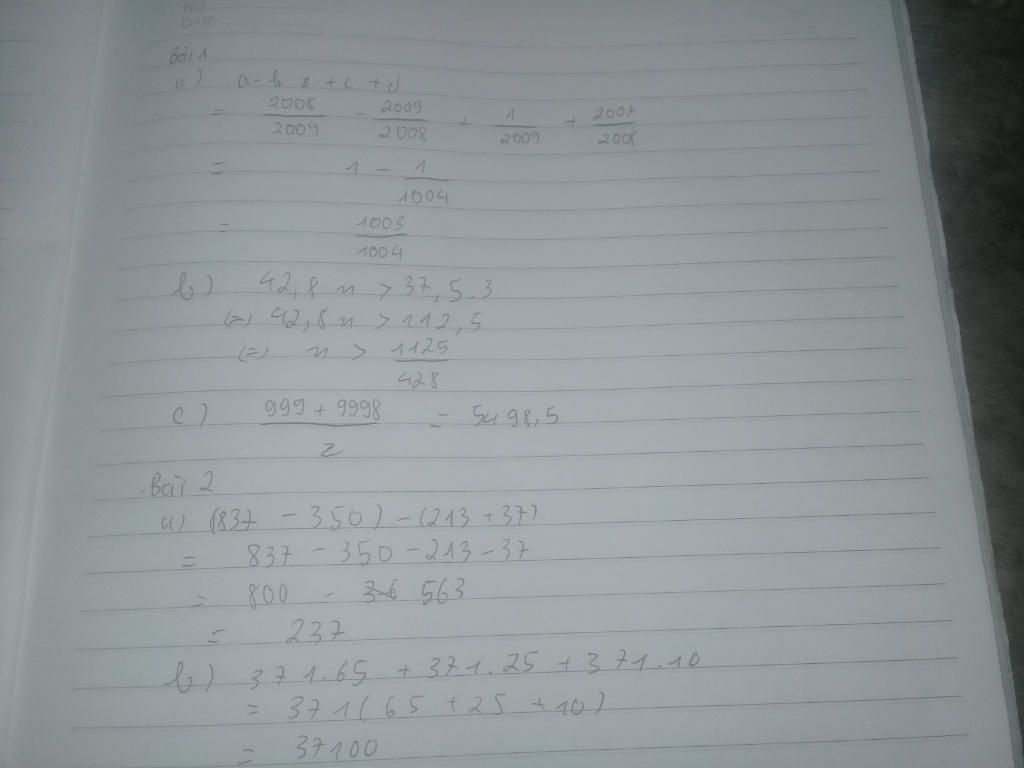 NO
DATE
Bài 1
a) a - b + c + d
= 2008/2009 - 2009/2008 + 1/2009 + 2007/2008
= 1 - 1/1004
= 1003/1004
b) 42,8 n > 37,5.3
(=) 42,8 n > 112,5
(=) n > 1125/428
c) (999 + 9998)/2 = 5498,5
Bài 2
a) (837 - 350) - (213 + 37)
= 837 - 350 - 213 - 37
= 800 - 563
= 237
b) 371.65 + 371.25 + 371.10
= 371(65 + 25 + 10)
= 37100